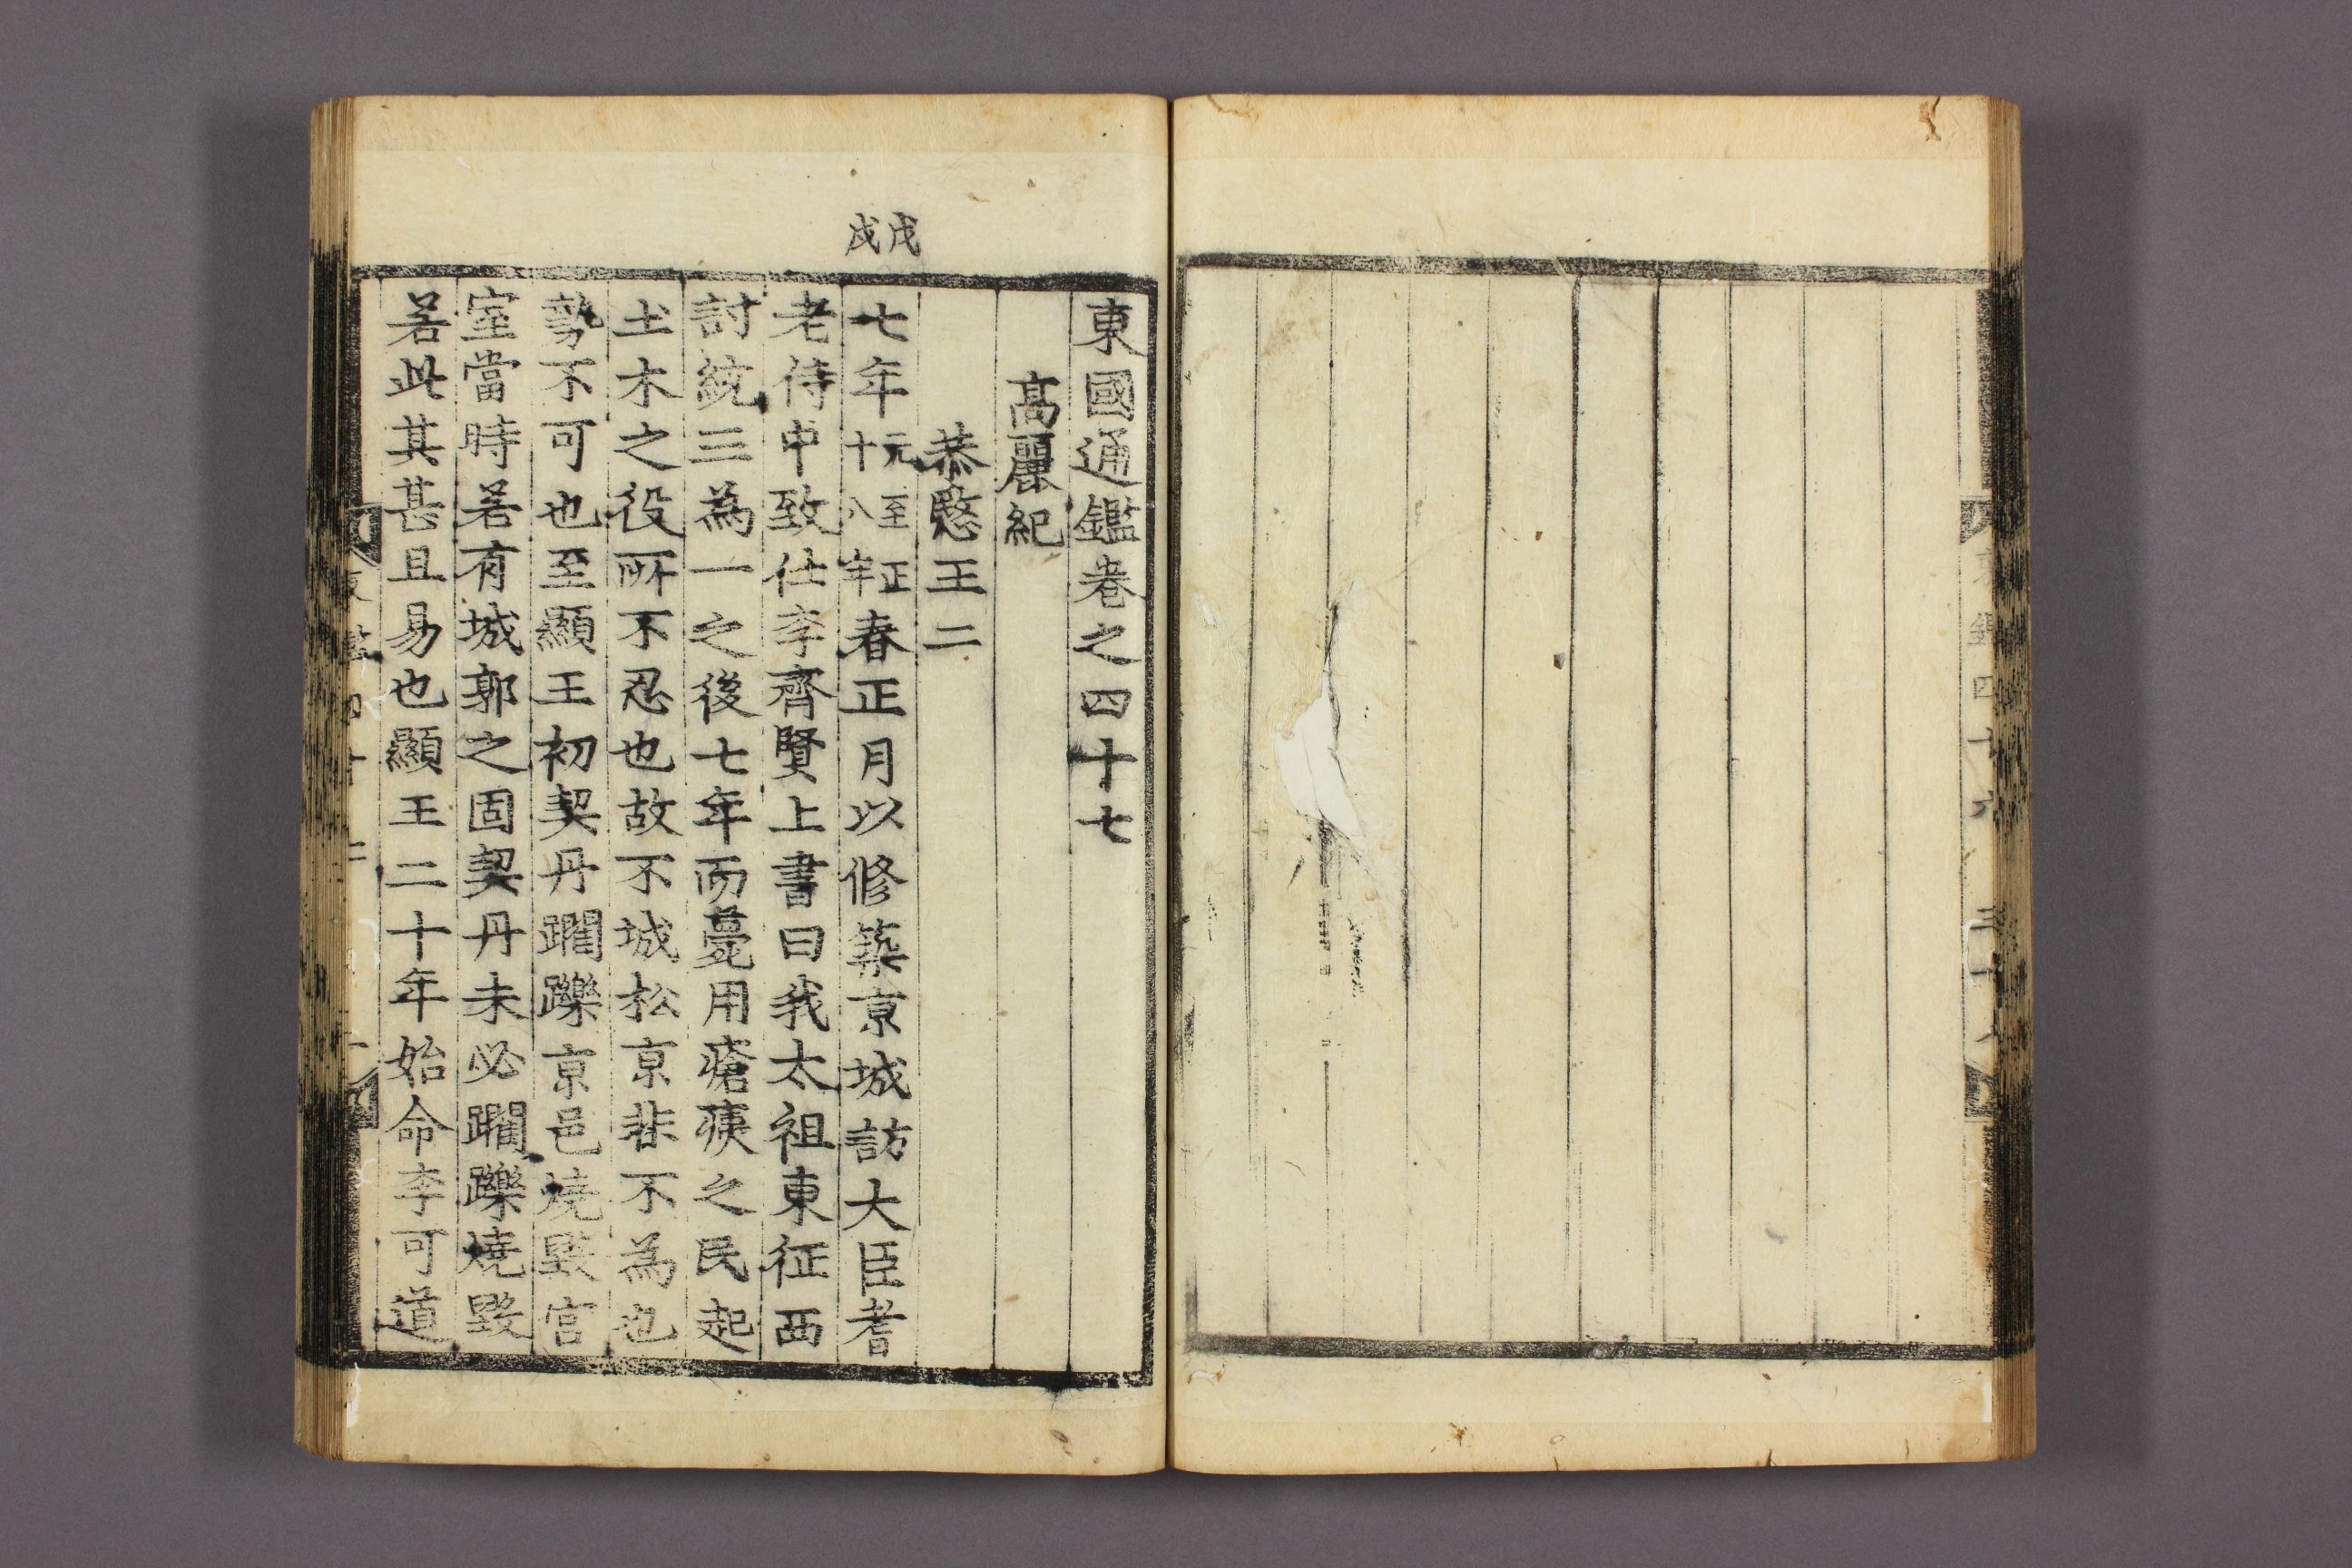 東國通鑑卷之四十七
高麗紀
恭愍王二
戊戌
七年元至正十八年春正月以修築京城訪大臣耆
老侍中致仕李齊賢上書曰我太祖東征西
討統三為一之後七年而薨用瘡痍之民起
土木之役所不忍也故不城松京非不為也
勢不可也至顯王初契丹躙躒京邑燒毀宮
室當時若有城郭之固契丹未必躙躒燒毀
若此其甚且易也顯王二十年始命李可道